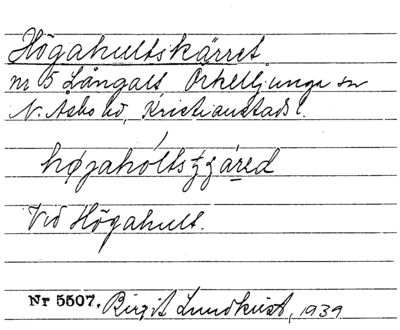 Högahultskärret
nr 5 Långalt Örkelljunga sn
N. Åsbo hd, Kristianstads l.
Vid Högahult.
Nr 5507. Birgit Lundkvist, 1939